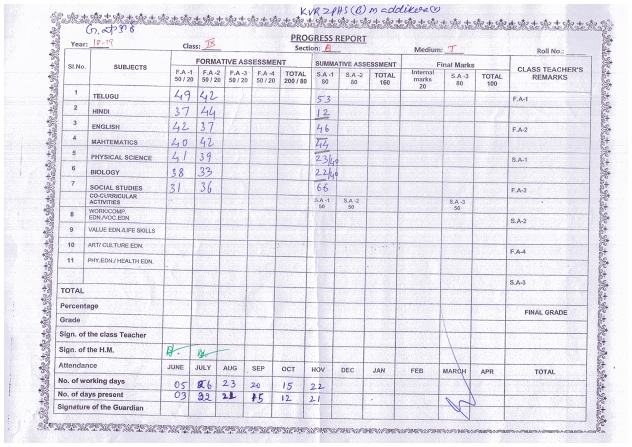 KVR ZPHS (B) Maddikera
PROGRESS REPORT
Year: 18-19 Class: IX Section: B Medium: T Roll No.:
Sl.No. SUBJECTS FORMATIVE ASSESSMENT SUMMATIVE ASSESSMENT Final Marks CLASS TEACHER'S REMARKS
F.A -1 50 / 20 F.A -2 50 / 20 F.A -3 50 / 20 F.A -4 50 / 20 TOTAL 200 / 80 S.A -1 80 S.A -2 80 TOTAL 160 Internal marks 20 S.A -3 80 TOTAL 100
1 TELUGU 49 42 53 F.A-1
2 HINDI 37 44 12
3 ENGLISH 42 37 46 F.A-2
4 MAHTEMATICS 40 42 44
5 PHYSICAL SCIENCE 41 39 23/40 S.A-1
6 BIOLOGY 38 33 22/40
7 SOCIAL STUDIES 31 36 66 F.A-3
CO-CURRICULAR ACTIVITIES S.A -1 50 S.A -2 50 S.A -3 50
8 WORK/COMP. EDN./VOC.EDN. S.A-2
9 VALUE EDN./LIFE SKILLS
10 ART/ CULTURE EDN. F.A-4
11 PHY.EDN./ HEALTH EDN.
S.A-3
TOTAL
Percentage FINAL GRADE
Grade
Sign. of the class Teacher
Sign. of the H.M.
Attendance JUNE JULY AUG SEP OCT NOV DEC JAN FEB MARCH APR TOTAL
No. of working days 05 26 23 20 15 22
No. of days present 03 22 21 15 12 21
Signature of the Guardian